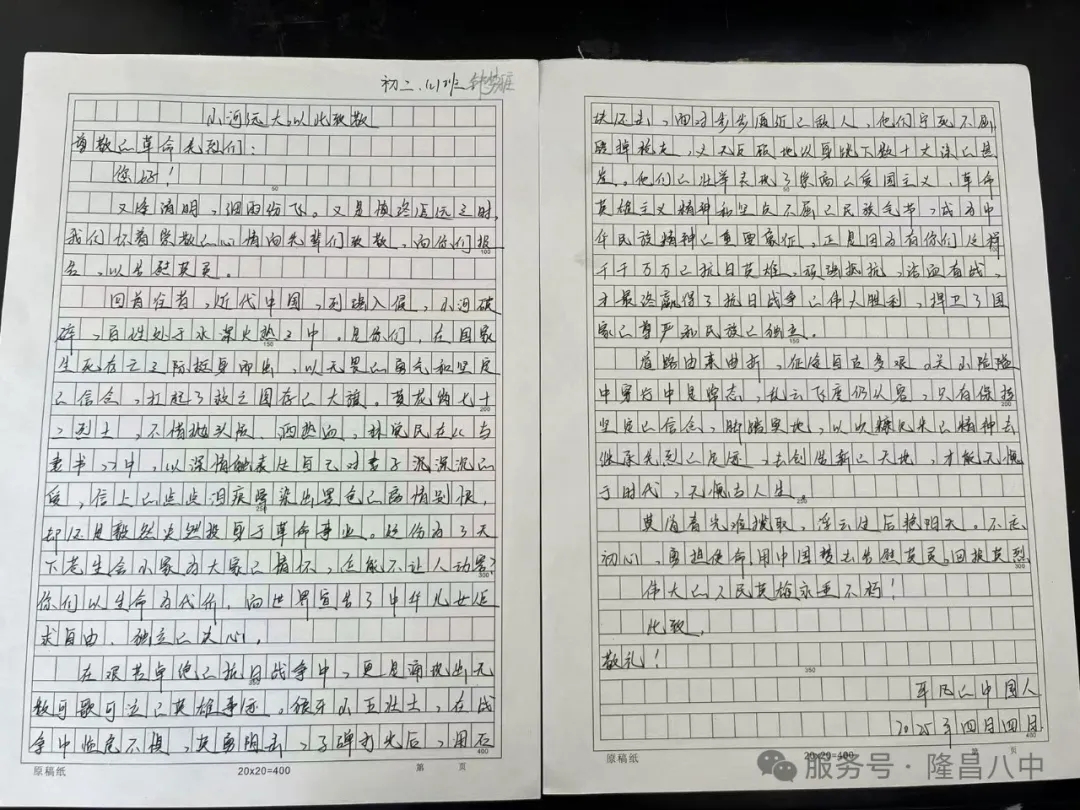 初二.(1)班
山河远大 以此致敬
尊敬的革命先烈们:
您好!
又逢清明,烟雨纷飞。又是慎终追远之时,
我们怀着崇敬的心情向先辈们致敬,向你们报
告,以告慰英灵。
回首往昔,近代中国,列强入侵,山河破
碎,百姓处于水深火热之中。是你们,在国家
生死存亡之际挺身而出,以无畏的勇气和坚定
的信念,扛起了救亡图存的大旗。黄花岗七十
二烈士,不惜抛头颅、洒热血,林觉民在《与
妻书》中,以深情地表达自己对妻子沉沉的
爱,信上的点点泪痕晕染出墨色的离情别恨,
却还是毅然决然投身于革命事业。这份为了天
下苍生舍小家为大家的情怀,怎能不让人动容?
你们以生命为代价,向世界宣告了中华儿女追
求自由、独立的决心。
在艰苦卓绝的抗日战争中,更是涌现出无
数可歌可泣的英雄事迹。狼牙山五壮士,在战
争中临危不惧,英勇阻击,子弹打光后,用石
块还击,面对步步逼近的敌人,他们宁死不屈
毁掉枪支,义无反顾地纵身跳下数十丈深的悬
崖。他们的壮举表现了崇高的爱国主义,革命
英雄主义精神和坚贞不屈的民族气节,成为中
华民族精神的重要象征。正是因为有你们这样
千千万万的抗日英雄,顽强抵抗,浴血奋战,
才最终赢得了抗日战争的伟大胜利,捍卫了国
家的尊严和民族的独立。
道路由来曲折,征途自古多艰。关山险隘
中穿行中是常志,乱云飞度仍从容,只有保持
坚定的信念,脚踏实地,以
继承先烈的足迹,去创造新的天地,才能无愧
于时代,无愧与人生。
莫道春光难揽取,浮云过后艳阳天。不忘
初心,勇担使命,用中国梦去告慰英灵。回报英烈
伟大的人民英雄永垂不朽!
此致,
敬礼!
平凡的中国人
2025年四月四日
原稿纸
20x20=400
第 页
20x20=400
页
服务号·隆昌八中